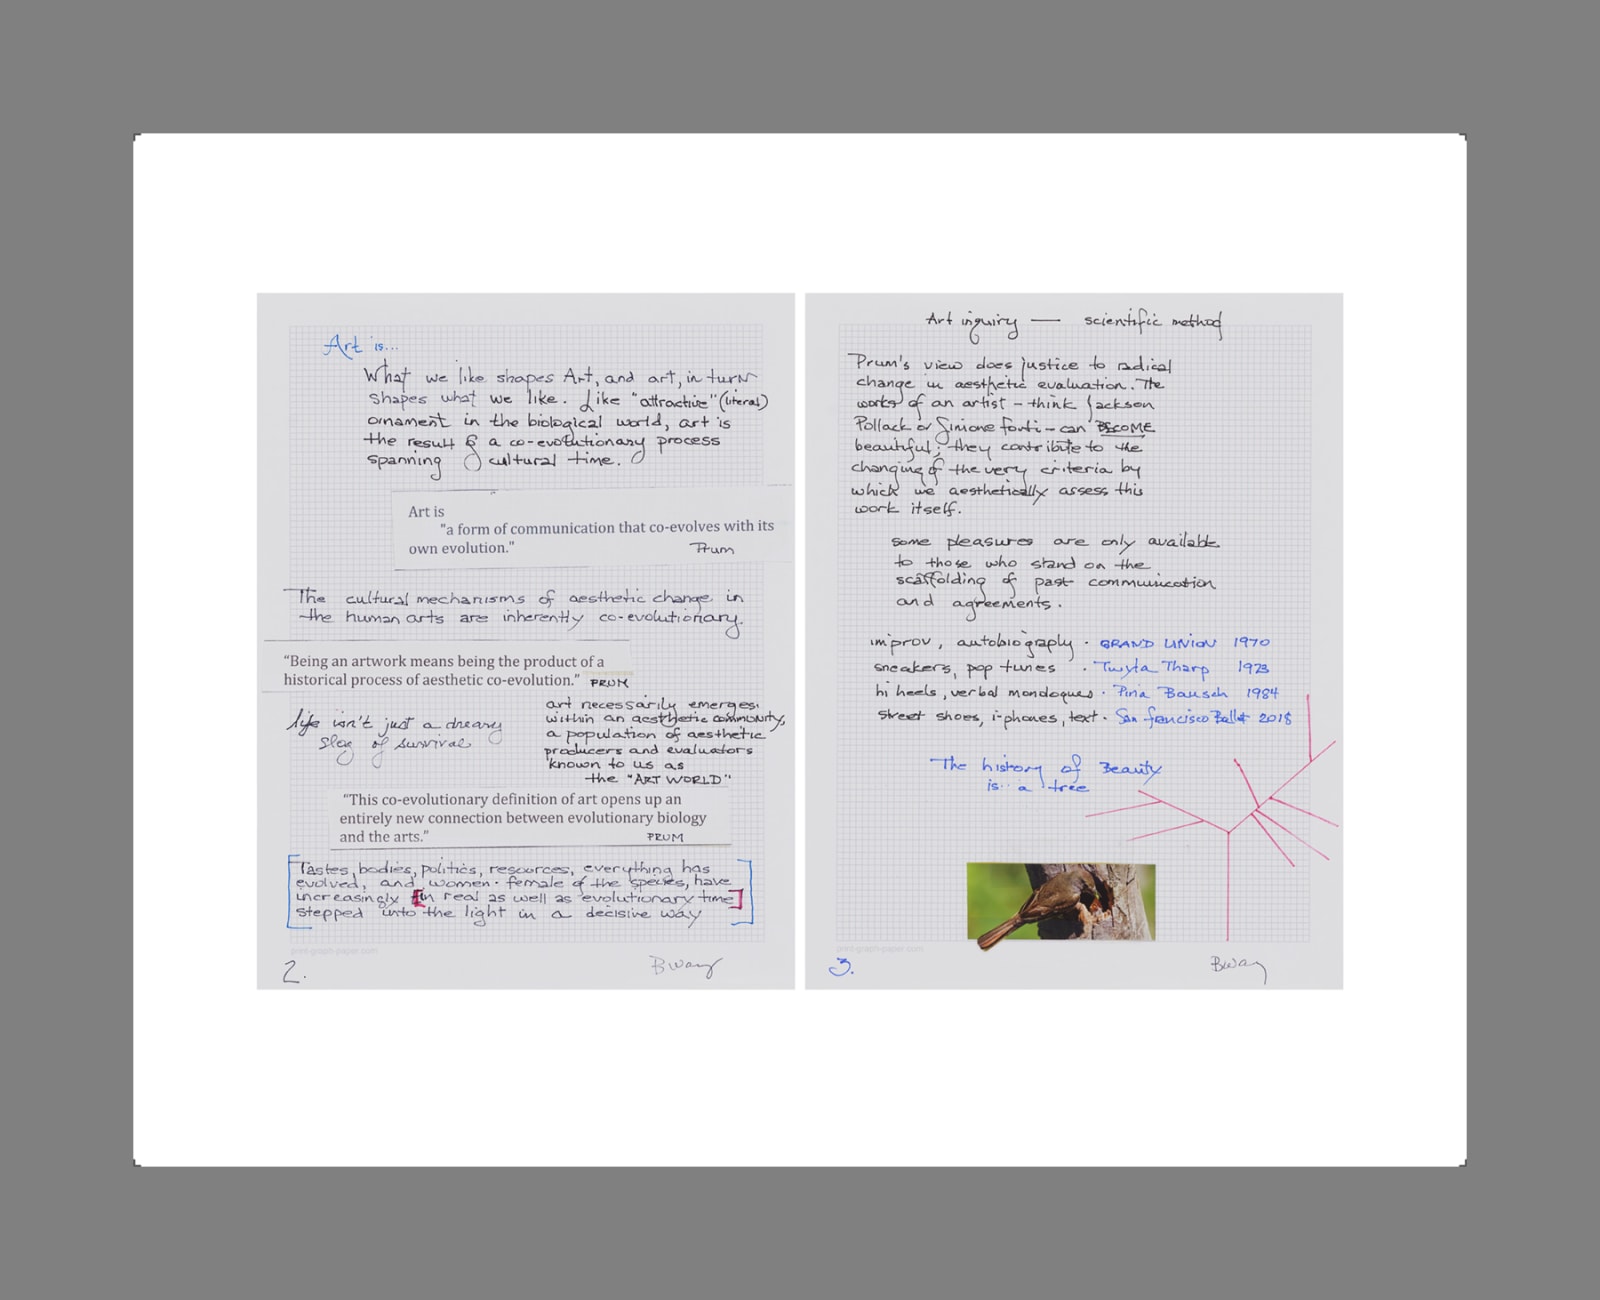 Art is...
What we like shapes Art, and art, in turn
shapes what we like. Like "attractive" (literal)
ornament in the biological world, art is
the result of a co-evolutionary process
spanning cultural time.
Art is
"a form of communication that co-evolves with its
own evolution."
Prum
The cultural mechanisms of aesthetic change in
the human arts are inherently co-evolutionary.
"Being an artwork means being the product of a
historical process of aesthetic co-evolution." PRUM
life isn't just a dreary
slog of survival
art necessarily emerges
within an aesthetic community,
a population of aesthetic
producers and evaluators
known to us as
the "ART WORLD"
"This co-evolutionary definition of art opens up an
entirely new connection between evolutionary biology
and the arts."
PRUM
[Tastes, bodies, politics, resources, everything has
evolved, and women · female of the species, have
increasingly [in real as well as evolutionary time]
stepped into the light in a decisive way]
print-graph-paper.com
2.
BWay
Art inquiry — scientific method
Prum's view does justice to radical
change in aesthetic evaluation. The
works of an artist – think Jackson
Pollack or Simone Forti – can BECOME
beautiful; they contribute to the
changing of the very criteria by
which we aesthetically assess this
work itself.
some pleasures are only available
to those who stand on the
scaffolding of past communication
and agreements.
improv, autobiography · GRAND UNION 1970
sneakers, pop tunes · Twyla Tharp 1973
hi heels, verbal monologues · Pina Bausch 1984
street shoes, i-phones, text · San Francisco Ballet 2018
The history of Beauty
is a tree
print-graph-paper.com
3.
BWay